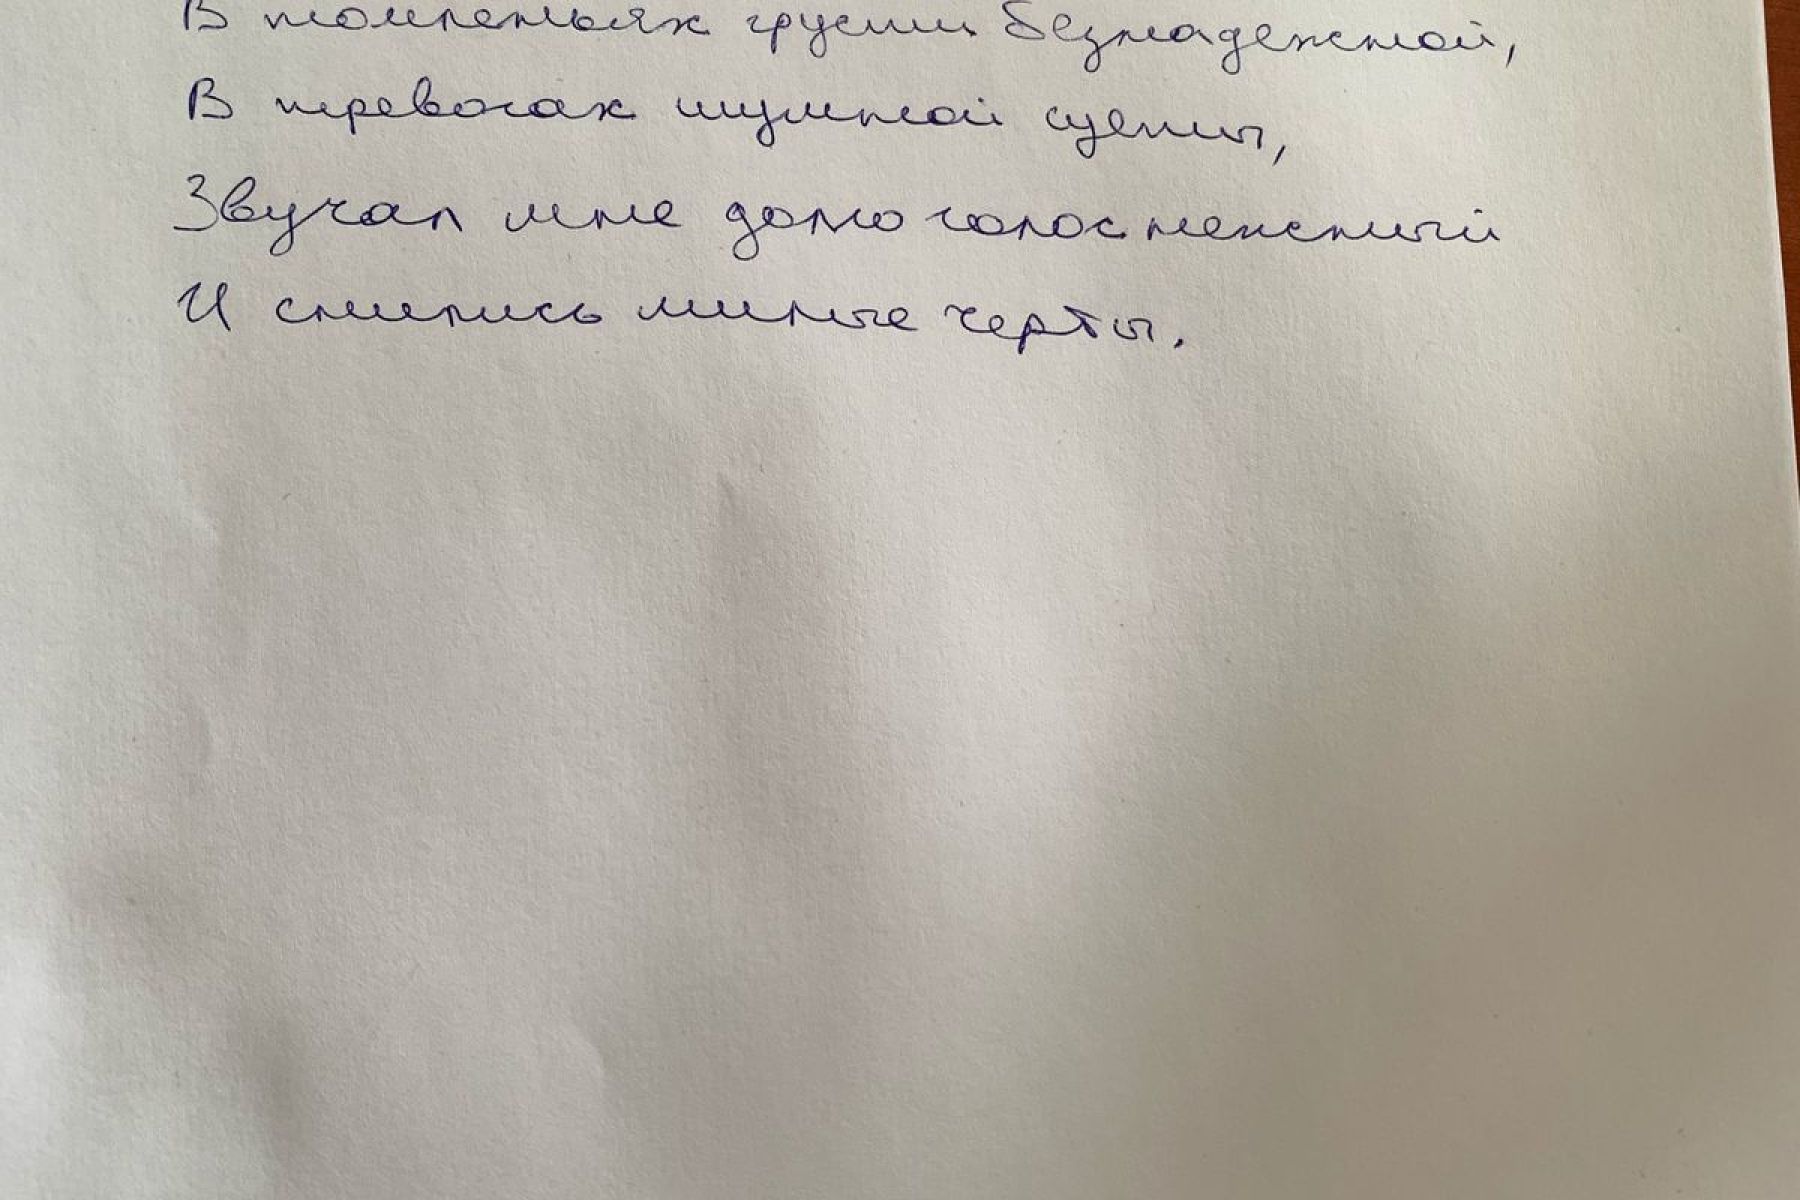 В томленьях грусти безнадежной,
В тревогах шумной суеты,
Звучал мне долго голос нежный
И снились милые черты.